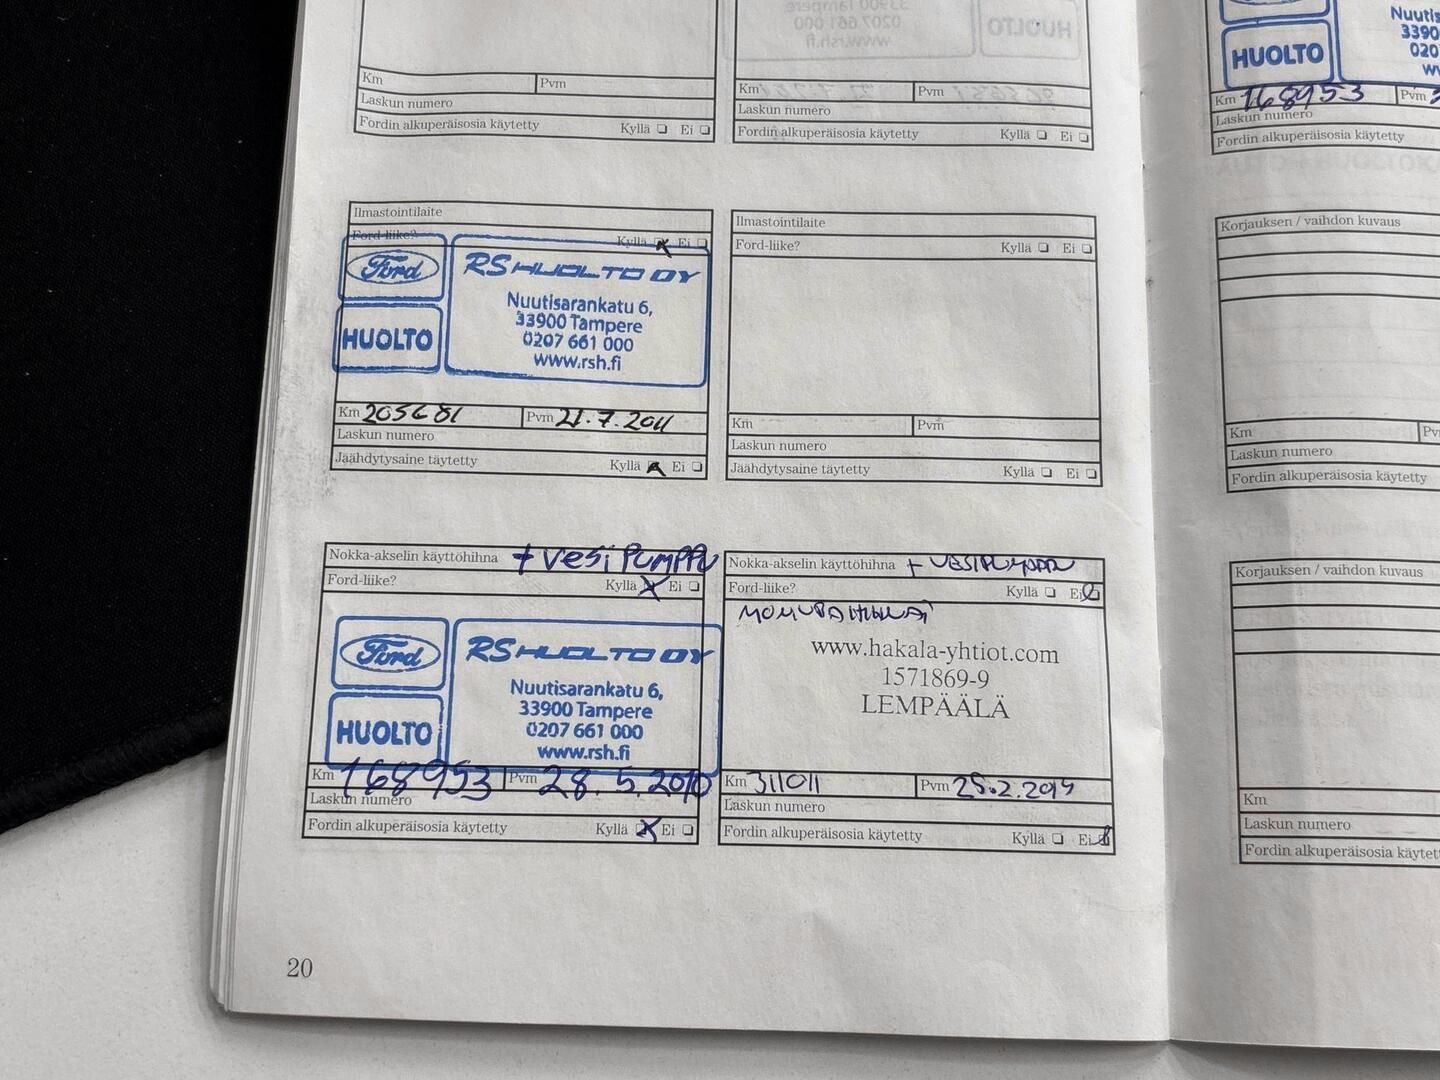 Km Pvm
Laskun numero
Fordin alkuperäisosia käytetty Kyllä Ei
Km Pvm
Laskun numero
Fordin alkuperäisosia käytetty Kyllä Ei
Ilmastointilaite
Ford-liike? Kyllä Ei
Ford
HUOLTO
RS HUOLTO OY
Nuutisarankatu 6,
33900 Tampere
0207 661 000
www.rsh.fi
Km 205681 Pvm 21.7.2011
Laskun numero
Jäähdytysaine täytetty Kyllä Ei
Ilmastointilaite
Ford-liike? Kyllä Ei
Km Pvm
Laskun numero
Jäähdytysaine täytetty Kyllä Ei
Nokka-akselin käyttöhihna + vesipumppu
Ford-liike? Kyllä Ei
Ford
HUOLTO
RS HUOLTO OY
Nuutisarankatu 6,
33900 Tampere
0207 661 000
www.rsh.fi
Km 168953 Pvm 28.5.2010
Laskun numero
Fordin alkuperäisosia käytetty Kyllä Ei
Nokka-akselin käyttöhihna + VESIPUMPPU
Ford-liike? Kyllä Ei
www.hakala-yhtiot.com
1571869-9
LEMPÄÄLÄ
Km 311011 Pvm 25.2.
Laskun numero
Fordin alkuperäisosia käytetty Kyllä Ei
20
HUOLTO
Km 168953 Pvm
Laskun numero
Fordin alkuperäisosia käytetty
Korjauksen / vaihdon kuvaus
Km
Laskun numero
Fordin alkuperäisosia käytetty
Korjauksen / vaihdon kuvaus
Km
Laskun numero
Fordin alkuperäisosia